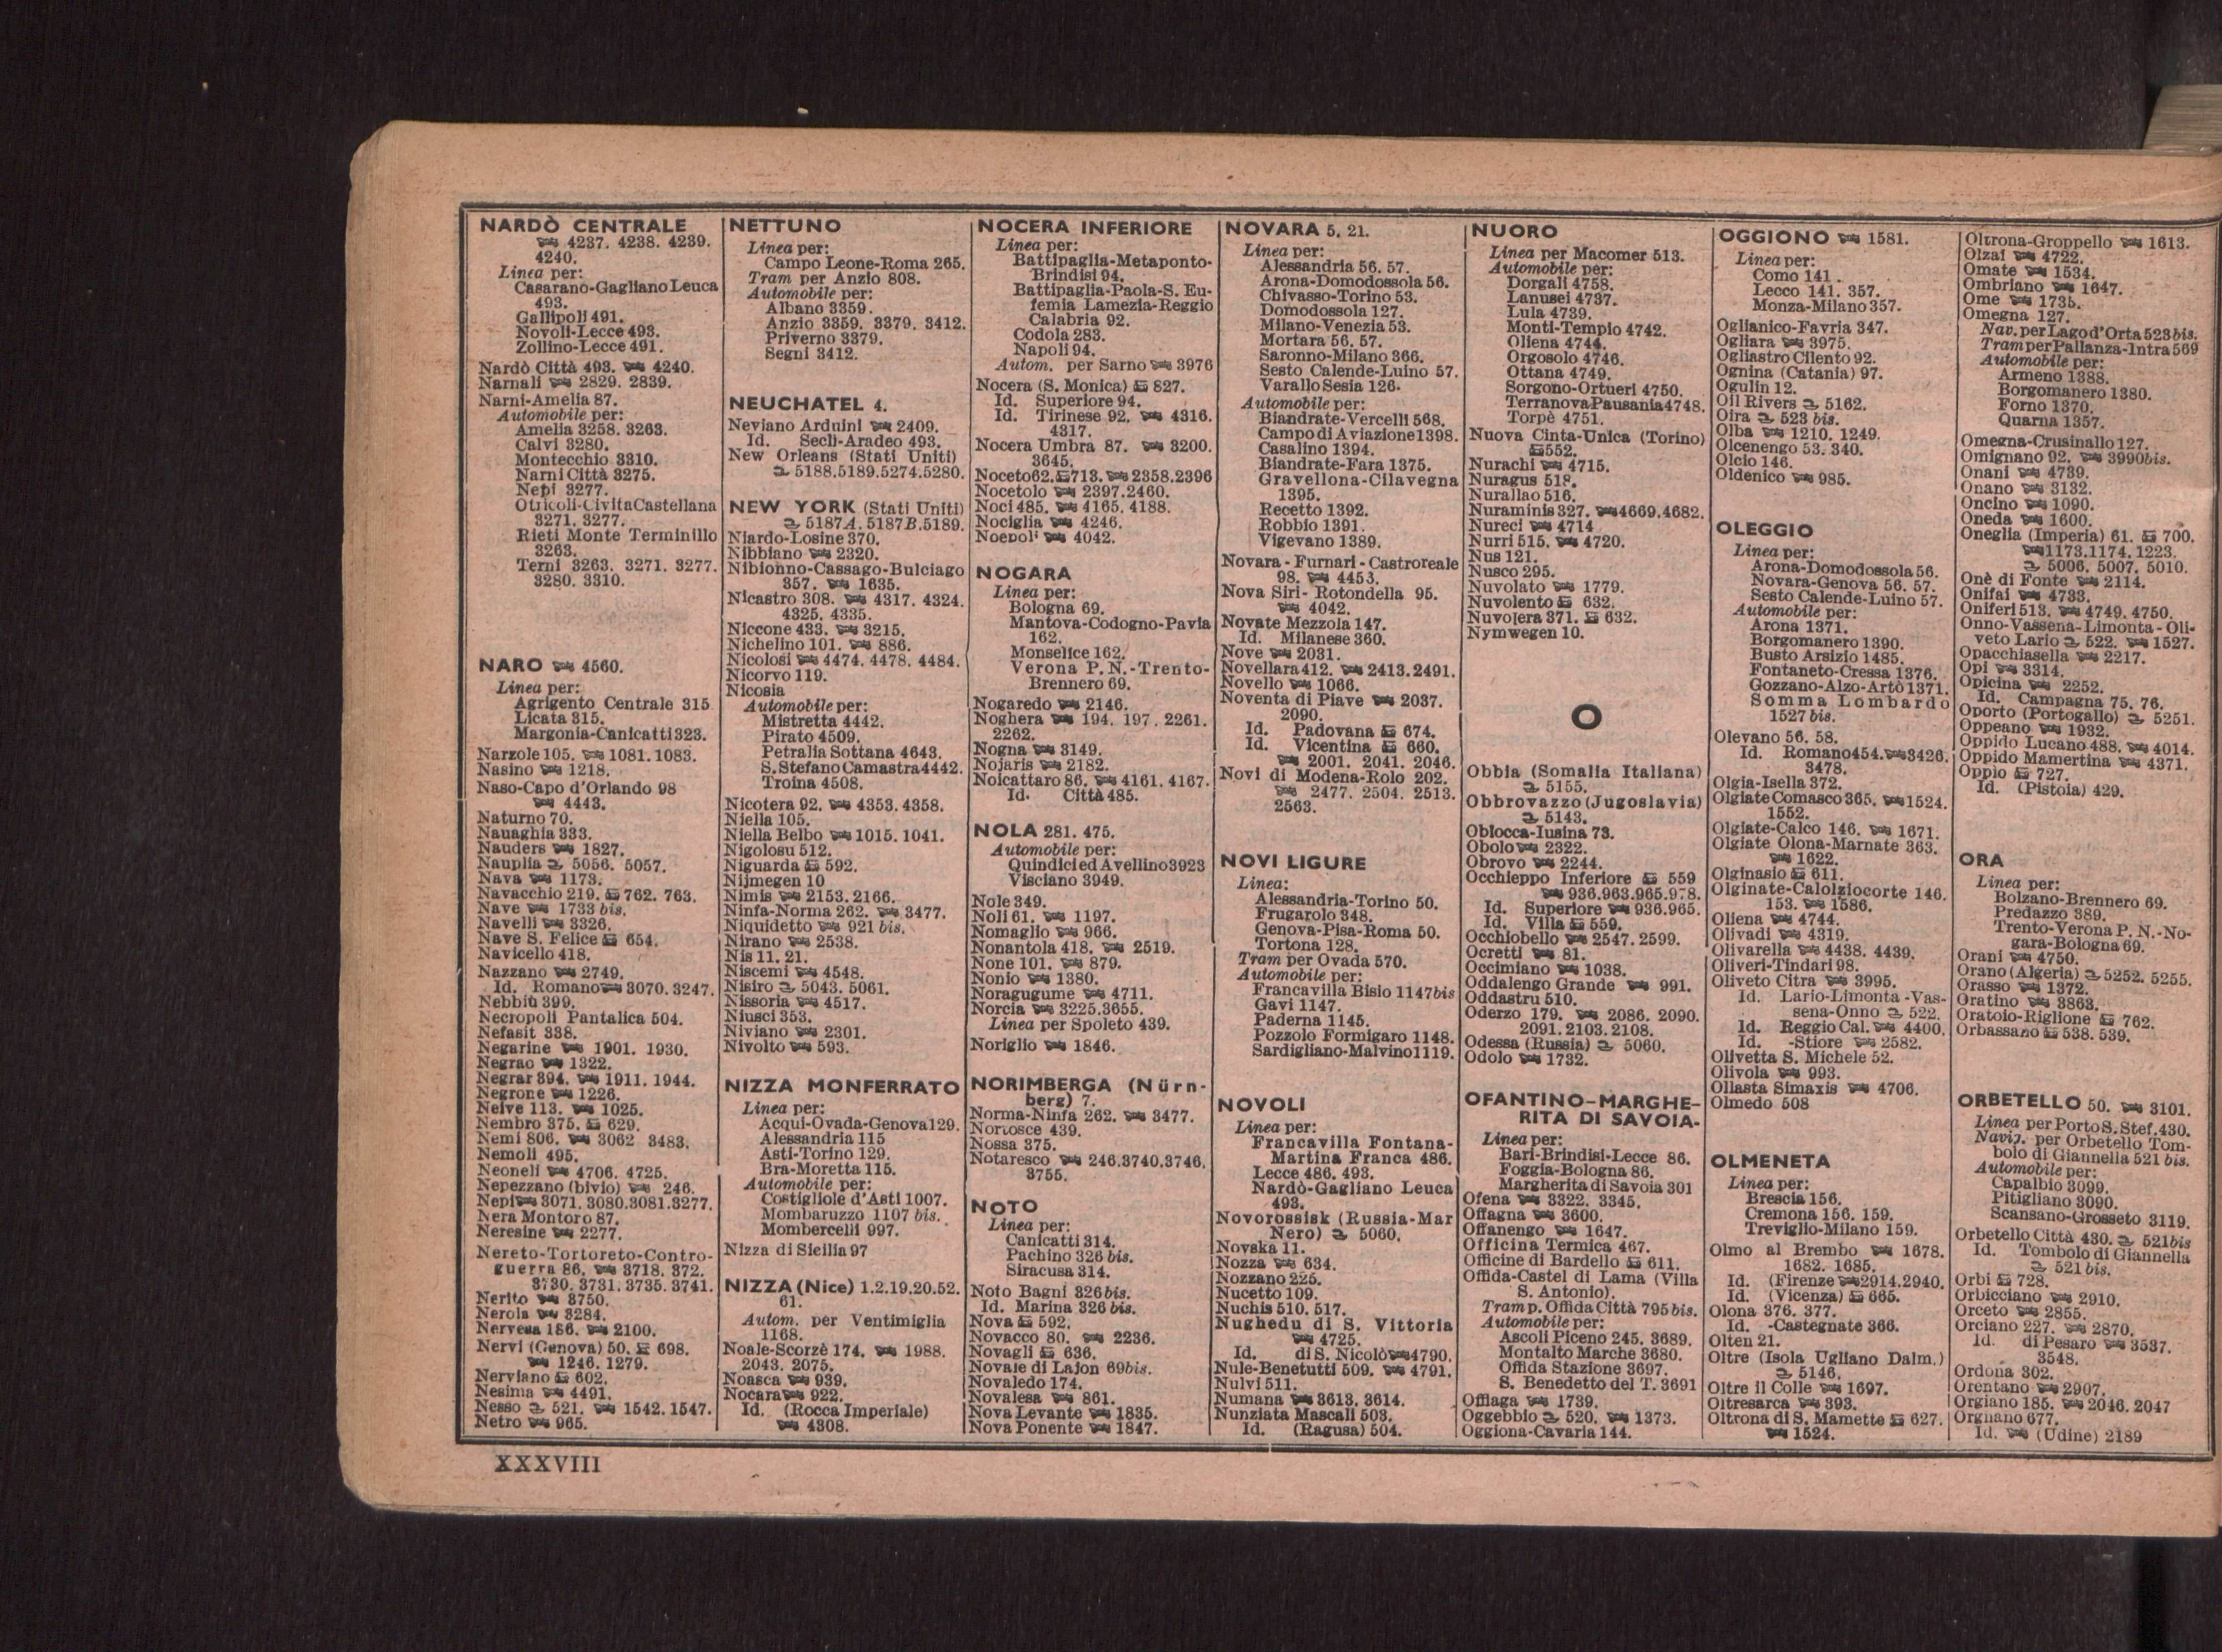 NARDÒ CENTRALE
4237. 4238. 4239.
4240.
Linea per:
Casarano-Gagliano Leuca
493.
Gallipoli 491.
Novoli-Lecce 493.
Zollino-Lecce 491.
Nardò Città 493. 4240.
Narnali 2829. 2839.
Narni-Amelia 87.
Automobile per:
Amelia 3258. 3263.
Calvi 3280.
Montecchio 3310.
Narni Città 3275.
Nepi 3277.
Otricoli-Civita Castellana
3271. 3277.
Rieti Monte Terminillo
3263.
Terni 3263. 3271. 3277.
3280. 3310.
NARO 4560.
Linea per:
Agrigento Centrale 315
Licata 315.
Margonia-Canicatti 323.
Narzole 105. 1081. 1083.
Nasino 1218.
Naso-Capo d'Orlando 98
4443.
Naturno 70.
Nauaghia 333.
Nauders 1827.
Nauplia 5056. 5057.
Nava 1173.
Navacchio 219. 762. 763.
Nave 1733 bis.
Navelli 3326.
Nave S. Felice 654.
Navicello 418.
Nazzano 2749.
Id. Romano 3070. 3247.
Nebbiù 399.
Necropoli Pantalica 504.
Nefasit 338.
Negarine 1901. 1930.
Negrao 1322.
Negrar 394. 1911. 1944.
Negrone 1226.
Neive 113. 1025.
Nembro 375. 629.
Nemi 806. 3062 3483.
Nemoli 495.
Neoneli 4706. 4725.
Nepezzano (bivio) 246.
Nepi 3071. 3080.3081.3277.
Nera Montoro 87.
Neresine 2277.
Nereto-Tortoreto-Contro-
guerra 86. 3718. 372.
3730. 3731. 3735. 3741.
Nerito 3750.
Nerola 3284.
Nervesa 186. 2100.
Nervi (Genova) 50. 698.
1246. 1279.
Nerviano 602.
Nesima 4491.
Nesso 521. 1542. 1547.
Netro 965.
NETTUNO
Linea per:
Campo Leone-Roma 265.
Tram per Anzio 808.
Automobile per:
Albano 3359.
Anzio 3359. 3379. 3412.
Priverno 3379.
Segni 3412.
NEUCHATEL 4.
Neviano Arduini 2409.
Id. Secli-Aradeo 493.
New Orleans (Stati Uniti)
5188.5189.5274.5280.
NEW YORK (Stati Uniti)
5187A. 5187B.5189.
Niardo-Losine 370.
Nibbiano 2320.
Nibionno-Cassago-Bulciago
357. 1635.
Nicastro 308. 4317. 4324.
4325. 4335.
Niccone 433. 3215.
Nichelino 101. 886.
Nicolosi 4474. 4478. 4484.
Nicorvo 119.
Nicosia
Automobile per:
Mistretta 4442.
Pirato 4509.
Petralia Sottana 4643.
S. Stefano Camastra 4442.
Troina 4508.
Nicotera 92. 4353. 4358.
Niella 105.
Niella Belbo 1015. 1041.
Nigolosu 512.
Niguarda 592.
Nijmegen 10
Nimis 2153. 2166.
Ninfa-Norma 262. 3477.
Niquidetto 921 bis.
Nirano 2538.
Nis 11. 21.
Niscemi 4548.
Nisiro 5043. 5061.
Nissoria 4517.
Niusci 353.
Niviano 2301.
Nivolto 593.
NIZZA MONFERRATO
Linea per:
Acqui-Ovada-Genova 129.
Alessandria 115
Asti-Torino 129.
Bra-Moretta 115.
Automobile per:
Costigliole d'Asti 1007.
Mombaruzzo 1107 bis.
Mombercelli 997.
Nizza di Sicilia 97
NIZZA (Nice) 1.2.19.20.52.
61.
Autom. per Ventimiglia
1168.
Noale-Scorzè 174. 1988.
2043. 2075.
Noasca 939.
Nocara 922.
Id. (Rocca Imperiale)
4308.
NOCERA INFERIORE
Linea per:
Battipaglia-Metaponto-
Brindisi 94.
Battipaglia-Paola-S. Eu-
femia Lamezia-Reggio
Calabria 92.
Codola 283.
Napoli 94.
Autom. per Sarno 3976
Nocera (S. Monica) 827.
Id. Superiore 94.
Id. Tirinese 92. 4316.
4317.
Nocera Umbra 87. 3200.
3645.
Noceto 62. 713. 2358.2396
Nocetolo 2397.2460.
Noci 485. 4165. 4188.
Nociglia 4246.
Noepoli 4042.
NOGARA
Linea per:
Bologna 69.
Mantova-Codogno-Pavia
162.
Monselice 162.
Verona P. N.-Trento-
Brennero 69.
Nogaredo 2146.
Noghera 194. 197. 2261.
2262.
Nogna 3149.
Nojaris 2182.
Noicattaro 86. 4161. 4167.
Id. Città 485.
NOLA 281. 475.
Automobile per:
Quindici ed Avellino 3923
Visciano 3949.
Nole 349.
Noli 61. 1197.
Nomaglio 966.
Nonantola 418. 2519.
None 101. 879.
Nonio 1380.
Noragugume 4711.
Norcia 3225.3655.
Linea per Spoleto 439.
Noriglio 1846.
NORIMBERGA (Nürn-
berg) 7.
Norma-Ninfa 262. 3477.
Nortosce 439.
Nossa 375.
Notaresco 246.3740.3746.
3755.
NOTO
Linea per:
Canicatti 314.
Pachino 326 bis.
Siracusa 314.
Noto Bagni 326 bis.
Id. Marina 326 bis.
Nova 592.
Novacco 80. 2236.
Novagli 636.
Novale di Lajon 69bis.
Novaledo 174.
Novalesa 861.
Nova Levante 1835.
Nova Ponente 1847.
NOVARA 5. 21.
Linea per:
Alessandria 56. 57.
Arona-Domodossola 56.
Chivasso-Torino 53.
Domodossola 127.
Milano-Venezia 53.
Mortara 56. 57.
Saronno-Milano 366.
Sesto Calende-Luino 57.
Varallo Sesia 126.
Automobile per:
Biandrate-Vercelli 568.
Campo di Aviazione 1398.
Casalino 1394.
Biandrate-Fara 1375.
Gravellona-Cilavegna
1395.
Recetto 1392.
Robbio 1391.
Vigevano 1389.
Novara - Furnari - Castroreale
98. 4453.
Nova Siri- Rotondella 95.
4042.
Novate Mezzola 147.
Id. Milanese 360.
Nove 2031.
Novellara 412. 2413.2491.
Novello 1066.
Noventa di Piave 2037.
2090.
Id. Padovana 674.
Id. Vicentina 660.
2001. 2041. 2046.
Novi di Modena-Rolo 202.
2477. 2504. 2513.
2563.
NOVI LIGURE
Linea:
Alessandria-Torino 50.
Frugarolo 348.
Genova-Pisa-Roma 50.
Tortona 128.
Tram per Ovada 570.
Automobile per:
Francavilla Bisio 1147bis
Gavi 1147.
Paderna 1145.
Pozzolo Formigaro 1148.
Sardigliano-Malvino 1119.
NOVOLI
Linea per:
Francavilla Fontana-
Martina Franca 486.
Lecce 486. 493.
Nardò-Gagliano Leuca
493.
Novorossisk (Russia-Mar
Nero) 5060.
Novska 11.
Nozza 634.
Nozzano 225.
Nucetto 109.
Nuchis 510. 517.
Nughedu di S. Vittoria
4725.
Id. di S. Nicolò 4790.
Nule-Benetutti 509. 4791.
Nulvi 511.
Numana 3613. 3614.
Nunziata Mascali 503.
Id. (Ragusa) 504.
NUORO
Linea per Macomer 513.
Automobile per:
Dorgali 4758.
Lanusei 4737.
Lula 4739.
Monti-Tempio 4742.
Oliena 4744.
Orgosolo 4746.
Ottana 4749.
Sorgono-Ortueri 4750.
Terranova Pausania 4748.
Torpè 4751.
Nuova Cinta-Unica (Torino)
552.
Nurachi 4715.
Nuragus 518.
Nurallao 516.
Nuraminis 327. 4669.4682.
Nureci 4714
Nurri 515. 4720.
Nus 121.
Nusco 295.
Nuvolato 1779.
Nuvolento 632.
Nuvolera 371. 632.
Nymwegen 10.
O
Obbia (Somalia Italiana)
5155.
Obbrovazzo (Jugoslavia)
5143.
Oblocca-Iusina 73.
Obolo 2322.
Obrovo 2244.
Occhieppo Inferiore 559
936.963.965.978.
Id. Superiore 936.965.
Id. Villa 559.
Occhiobello 2547. 2599.
Ocretti 81.
Occimiano 1038.
Oddalengo Grande 991.
Oddastru 510.
Oderzo 179. 2086. 2090.
2091. 2103. 2108.
Odessa (Russia) 5060.
Odolo 1732.
OFANTINO-MARGHE-
RITA DI SAVOIA-
Linea per:
Bari-Brindisi-Lecce 86.
Foggia-Bologna 86.
Margherita di Savoia 301
Ofena 3322. 3345.
Offagna 3600.
Offanengo 1647.
Officina Termica 467.
Officine di Bardello 611.
Offida-Castel di Lama (Villa
S. Antonio).
Tram p. Offida Città 795 bis.
Automobile per:
Ascoli Piceno 245. 3689.
Montalto Marche 3680.
Offida Stazione 3697.
S. Benedetto del T. 3691
Offlaga 1739.
Oggebbio 520. 1373.
Oggiona-Cavaria 144.
OGGIONO 1581.
Linea per:
Como 141.
Lecco 141. 357.
Monza-Milano 357.
Oglianico-Favria 347.
Ogliara 3975.
Ogliastro Cilento 92.
Ognina (Catania) 97.
Ogulin 12.
Oil Rivers 5162.
Oira 523 bis.
Olba 1210. 1249.
Olcenengo 53. 340.
Olcio 146.
Oldenico 985.
OLEGGIO
Linea per:
Arona-Domodossola 56.
Novara-Genova 56. 57.
Sesto Calende-Luino 57.
Automobile per:
Arona 1371.
Borgomanero 1390.
Busto Arsizio 1485.
Fontaneto-Cressa 1376.
Gozzano-Alzo-Artò 1371.
Somma Lombardo
1527 bis.
Olevano 56. 58.
Id. Romano 454. 3426.
3478.
Olgia-Isella 372.
Olgiate Comasco 365. 1524.
1552.
Olgiate-Calco 146. 1671.
Olgiate Olona-Marnate 363.
1622.
Olginasio 611.
Olginate-Calolziocorte 146.
153. 1586.
Oliena 4744.
Olivadi 4319.
Olivarella 4438. 4439.
Oliveri-Tindari 98.
Oliveto Citra 3995.
Id. Lario-Limonta -Vas-
sena-Onno 522.
Id. Reggio Cal. 4400.
Id. -Stiore 2582.
Olivetta S. Michele 52.
Olivola 993.
Ollasta Simaxis 4706.
Olmedo 508
OLMENETA
Linea per:
Brescia 156.
Cremona 156. 159.
Treviglio-Milano 159.
Olmo al Brembo 1678.
1682. 1685.
Id. (Firenze 2914.2940.
Id. (Vicenza) 665.
Olona 376. 377.
Id. -Castegnate 366.
Olten 21.
Oltre (Isola Ugliano Dalm.)
5146.
Oltre il Colle 1697.
Oltresarca 393.
Oltrona di S. Mamette 627.
1524.
Oltrona-Groppello 1613.
Olzai 4722.
Omate 1534.
Ombriano 1647.
Ome 1735.
Omegna 127.
Nav. per Lago d'Orta 523bis.
Tram per Pallanza-Intra 569
Automobile per:
Armeno 1388.
Borgomanero 1380.
Forno 1370.
Quarna 1357.
Omegna-Crusinallo 127.
Omignano 92. 3990bis.
Onani 4739.
Onano 3132.
Oncino 1090.
Oneda 1600.
Oneglia (Imperia) 61. 700.
1173.1174. 1223.
5006. 5007. 5010.
Onè di Fonte 2114.
Onifai 4733.
Oniferi 513. 4749. 4750.
Onno-Vassena-Limonta-Oli-
veto Lario 522. 1527.
Opacchiasella 2217.
Opi 3314.
Opicina 2252.
Id. Campagna 75. 76.
Oporto (Portogallo) 5251.
Oppeano 1932.
Oppido Lucano 488. 4014.
Oppido Mamertina 4371.
Oppio 727.
Id. (Pistoia) 429.
ORA
Linea per:
Bolzano-Brennero 69.
Predazzo 389.
Trento-Verona P. N.-No-
gara-Bologna 69.
Orani 4750.
Orano (Algeria) 5252. 5255.
Orasso 1372.
Oratino 3863.
Oratoio-Riglione 762.
Orbassano 538. 539.
ORBETELLO 50. 3101.
Linea per Porto S. Stef. 430.
Navig. per Orbetello Tom-
bolo di Giannella 521 bis.
Automobile per:
Capalbio 3099.
Pitigliano 3090.
Scansano-Grosseto 3119.
Orbetello Città 430. 521bis
Id. Tombolo di Giannella
521 bis.
Orbi 728.
Orbicciano 2910.
Orceto 2855.
Orciano 227. 2870.
Id. di Pesaro 3537.
3548.
Ordona 302.
Orentano 2907.
Orgiano 185. 2046. 2047
Orgnano 677.
Id. (Udine) 2189
XXXVIII